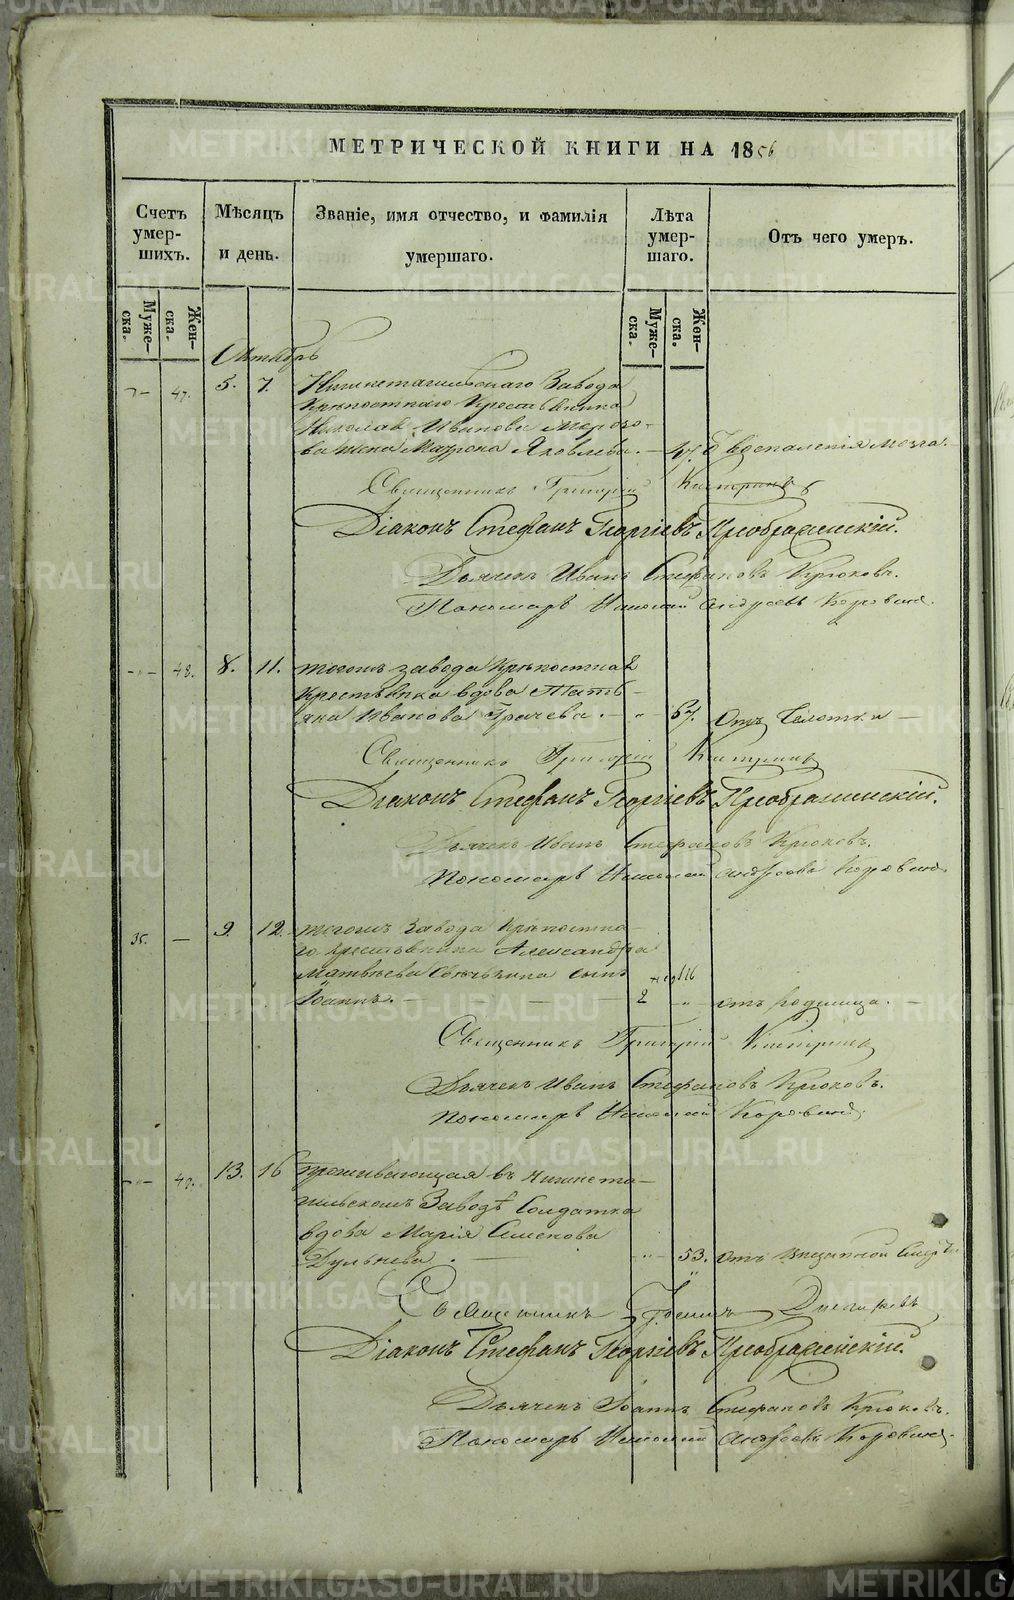 МЕТРИЧЕСКОЙ КНИГИ НА 1856
Счетъ умер-шихъ.
Мѣсяцъ и день.
Званіе, имя отчество, и фамилія умершаго.
Лѣта умер-шаго.
Отъ чего умеръ.
Муже-ска.
Жен-ска.
Муже-ска.
Жен-ска.
Октябрь
47. 5. 7. Нижнетагильскаго Завода
Крѣпостнаго Крестьянина
Николая Иванова Морозо-
ва жена Матрона Яковлева. воспаленія мозга.
Священникъ Григорій
Діаконъ Стефанъ Георгіевъ Преображенскій.
Дьячекъ Иванъ Стефановъ Крюковъ.
Пономарь Николай Андреевъ Коровинъ.
48. 8. 11. тогожъ завода Крѣпостная
Крестьянка вдова Тать-
яна Иванова Грачева. 67. Отъ Чахотки
Священникъ Григорій
Діаконъ Стефанъ Георгіевъ Преображенскій.
Дьячекъ Иванъ Стефановъ Крюковъ.
Пономарь Николай Андреевъ Коровинъ.
35. 9. 12. тогожъ Завода Крѣпостна-
го крестьянина Александра
Матвѣева сынъ
Іоаннъ. 2 нед. отъ родимца.
Священникъ Григорій
Дьячекъ Иванъ Стефановъ Крюковъ.
Пономарь Николай Коровинъ.
49. 13. 16 Проживающая въ Нижнета-
гильскомъ Заводѣ Солдатка
вдова Марія Семенова
53. отъ внезапной смерти
Священникъ
Діаконъ Стефанъ Георгіевъ Преображенскій.
Дьячекъ Іоаннъ Стефановъ Крюковъ.
Пономарь Николай Андреевъ Коровинъ.
METRIKI.GASO-URAL.RU